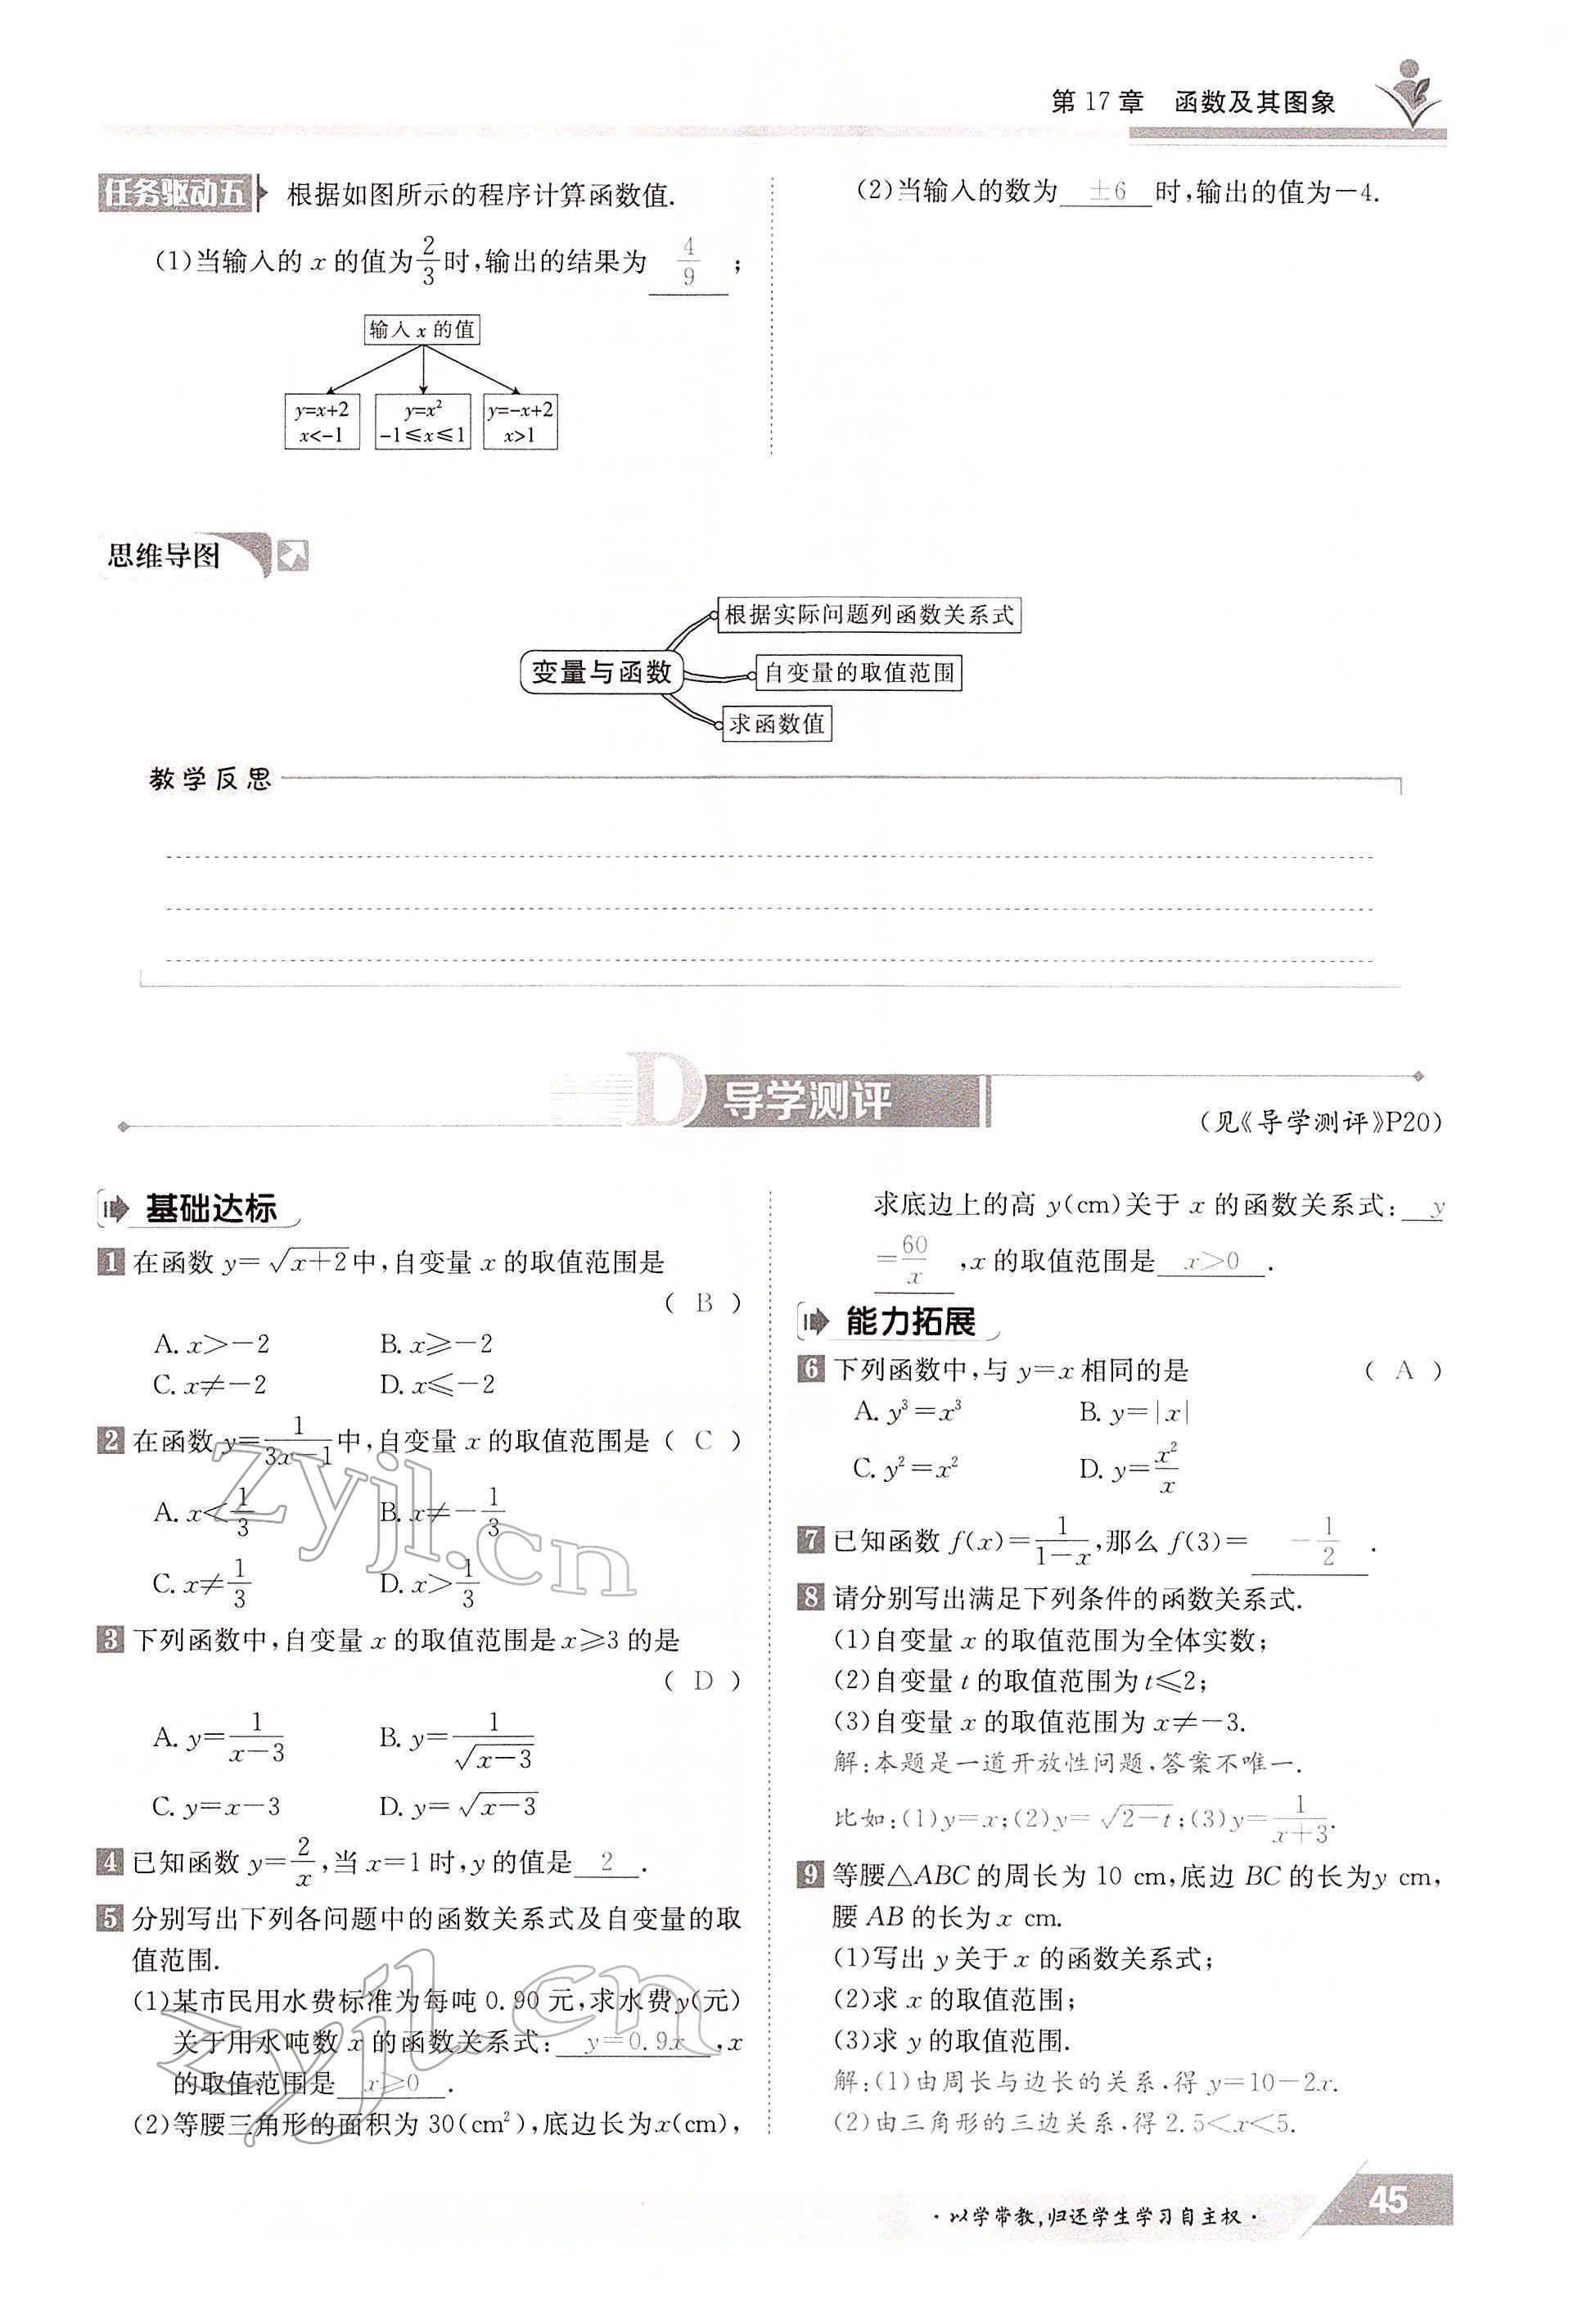 第17章 函数及其图象
任务驱动五 根据如图所示的程序计算函数值.
(1)当输入的 x 的值为2/3时,输出的结果为 4/9 ;
输入 x 的值
y=x+2 x<-1
y=x² -1≤x≤1
y=-x+2 x>1
(2)当输入的数为 ±6 时,输出的值为-4.
思维导图
变量与函数
根据实际问题列函数关系式
自变量的取值范围
求函数值
教学反思
D 导学测评
(见《导学测评》P20)
基础达标
1 在函数 y=√(x+2)中,自变量 x 的取值范围是
( B )
A. x>-2 B. x≥-2
C. x≠-2 D. x≤-2
2 在函数 y=1/(3x-1)中,自变量 x 的取值范围是( C )
A. x<1/3 B. x≠-1/3
C. x≠1/3 D. x>1/3
3 下列函数中,自变量 x 的取值范围是x≥3 的是
( D )
A. y=1/(x-3) B. y=1/√(x-3)
C. y=x-3 D. y=√(x-3)
4 已知函数 y=2/x,当 x=1 时,y 的值是 2 .
5 分别写出下列各问题中的函数关系式及自变量的取
值范围.
(1)某市民用水费标准为每吨 0.90 元,求水费y(元)
关于用水吨数 x 的函数关系式: y=0.9x ,x
的取值范围是 x≥0 .
(2)等腰三角形的面积为 30(cm²),底边长为x(cm),
求底边上的高 y(cm)关于 x 的函数关系式: y
=60/x ,x 的取值范围是 x>0 .
能力拓展
6 下列函数中,与 y=x 相同的是 ( A )
A. y³=x³ B. y=|x|
C. y²=x² D. y=x²/x
7 已知函数 f(x)=1/(1-x),那么 f(3)= -1/2 .
8 请分别写出满足下列条件的函数关系式.
(1)自变量 x 的取值范围为全体实数;
(2)自变量 t 的取值范围为 t≤2;
(3)自变量 x 的取值范围为 x≠-3.
解:本题是一道开放性问题,答案不唯一.
比如:(1)y=x;(2)y=√(2-t);(3)y=1/(x+3).
9 等腰△ABC 的周长为 10 cm,底边 BC 的长为y cm,
腰 AB 的长为 x cm.
(1)写出 y 关于 x 的函数关系式;
(2)求 x 的取值范围;
(3)求 y 的取值范围.
解:(1)由周长与边长的关系,得 y=10-2x.
(2)由三角形的三边关系,得 2.5<x<5.
zyjl.cn
zyjl.cn
·以学带教,归还学生学习自主权·
45